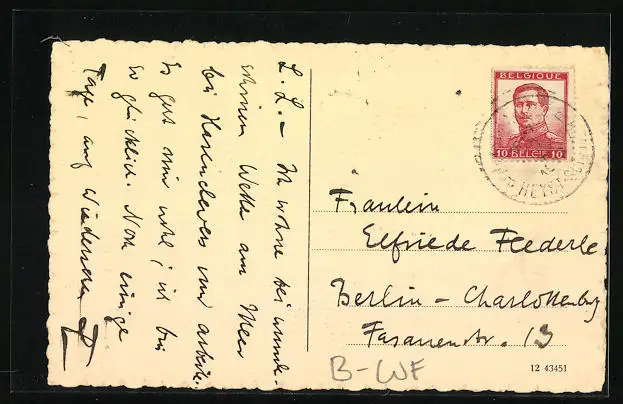 L. L. – Ich wohne bei wunder-
schönem Wetter am Meer
bei und arbeite.
Es geht mir wohl, ich bin
so glücklich. Noch einige
Tage, auf Wiedersehen
BELGIQUE
10 BELGIË 10
HEYST
Fräulein
Elfriede Federle
Berlin – Charlottenburg
Fasanenstr. 13
12 43451
B-WF